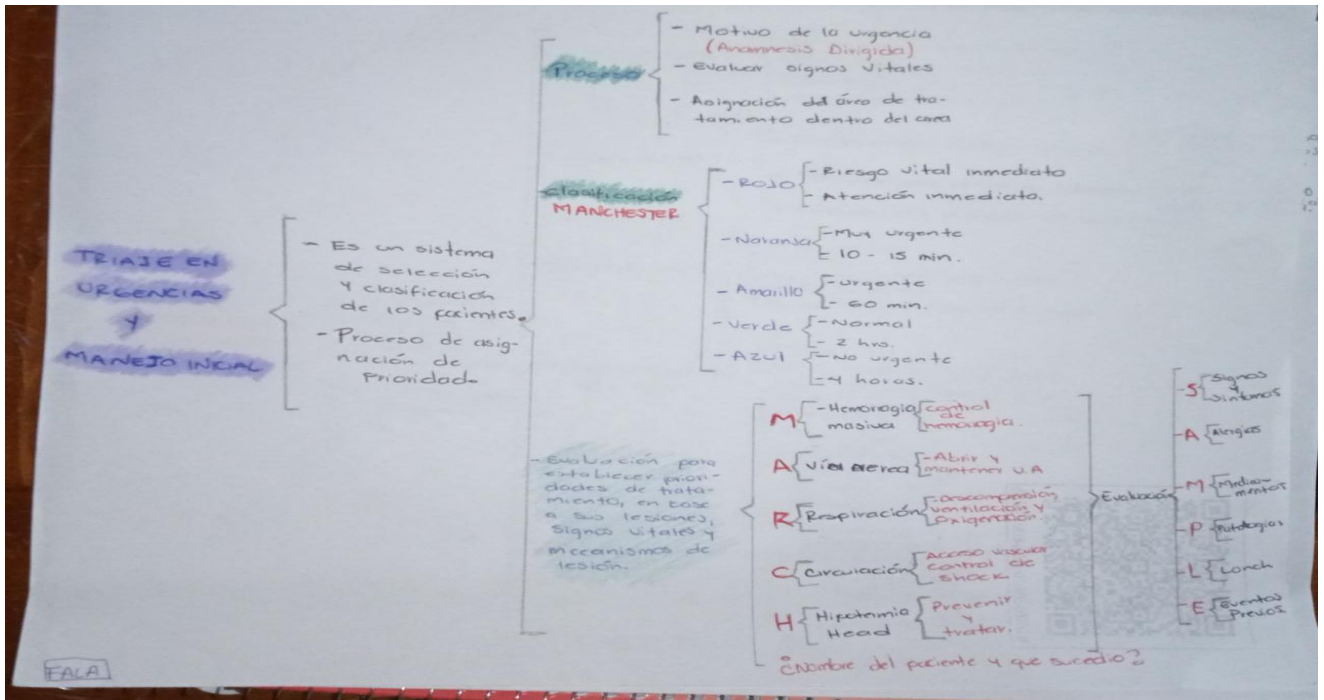 TRIAJE EN
URGENCIAS
Y
MANEJO INICIAL
- Es un sistema
de selección
y clasificación
de los pacientes.
- Proceso de asig-
nación de
Prioridad
Proceso
- Motivo de la urgencia
(Anamnesis Dirigida)
- evaluar signos vitales
- Asignación del área de tra-
tamiento dentro del area
Clasificación
MANCHESTER
- ROJO
- Riesgo vital inmediato
- Atención inmediata.
- Naranja
- Muy urgente
- 10 - 15 min.
- Amarillo
- urgente
- 60 min.
- Verde
- Normal
- 2 hrs.
- AZUl
- No urgente
- 4 horas.
- Evaluación para
establecer priori-
dades de trata-
miento, en base
a sus lesiones,
signos vitales y
mecanismos de
lesión.
M
- Hemorragia
masiva
control
de
hemorragia.
A
vía aerea
- Abrir y
mantener v.A
R
Respiración
- Descompresión,
ventilación y
oxigenación.
C
circulación
Acceso vascular
control de
shock
H
Hipotermia
Head
Prevenir
y
tratar.
¿Nombre del paciente y que sucedio?
Evaluación
- S
Signos
y
sintomas
- A
Alergias
- M
Medica-
mentos
- P
Patologias
- L
Lonch
- E
Eventos
Previos
EALA